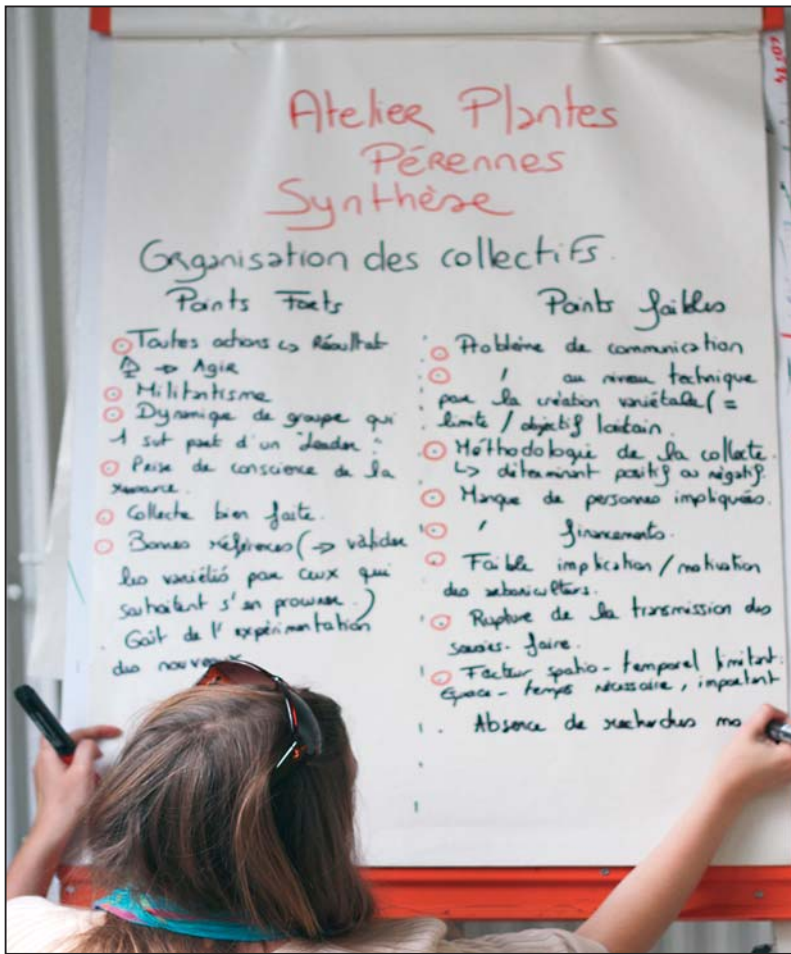 Atelier Plantes
Pérennes
Synthèse
Organisation des collectifs.
Points Forts
Toutes actions ↳ Résultat
→ Agir
Militantisme
Dynamique de groupe qui
suit part d'un "Leader".
Prise de conscience de la
Collecte bien faite.
Bonnes références (→ valider
les variétés par ceux qui
souhaitent s'en procurer.)
. Goût de l'expérimentation
des nouveaux
Points faibles
Problème de communication
" au niveau technique
pour la création variétale (=
limite / objectif lointain.
Méthodologie de la collecte.
↳ déterminant positif ou négatif.
Manque de personnes impliquées.
" financements.
Faible implication / motivation
des arboriculteurs.
Rupture de la transmission des
savoirs-faire.
Facteur spatio-temporel limitant.
Espace-temps nécessaire, important
. Absence de recherches